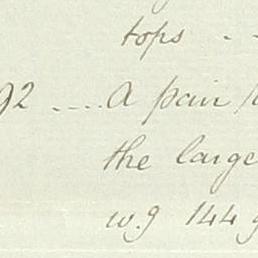 tops . .
92 .... A pair
the large
w.g 144 g